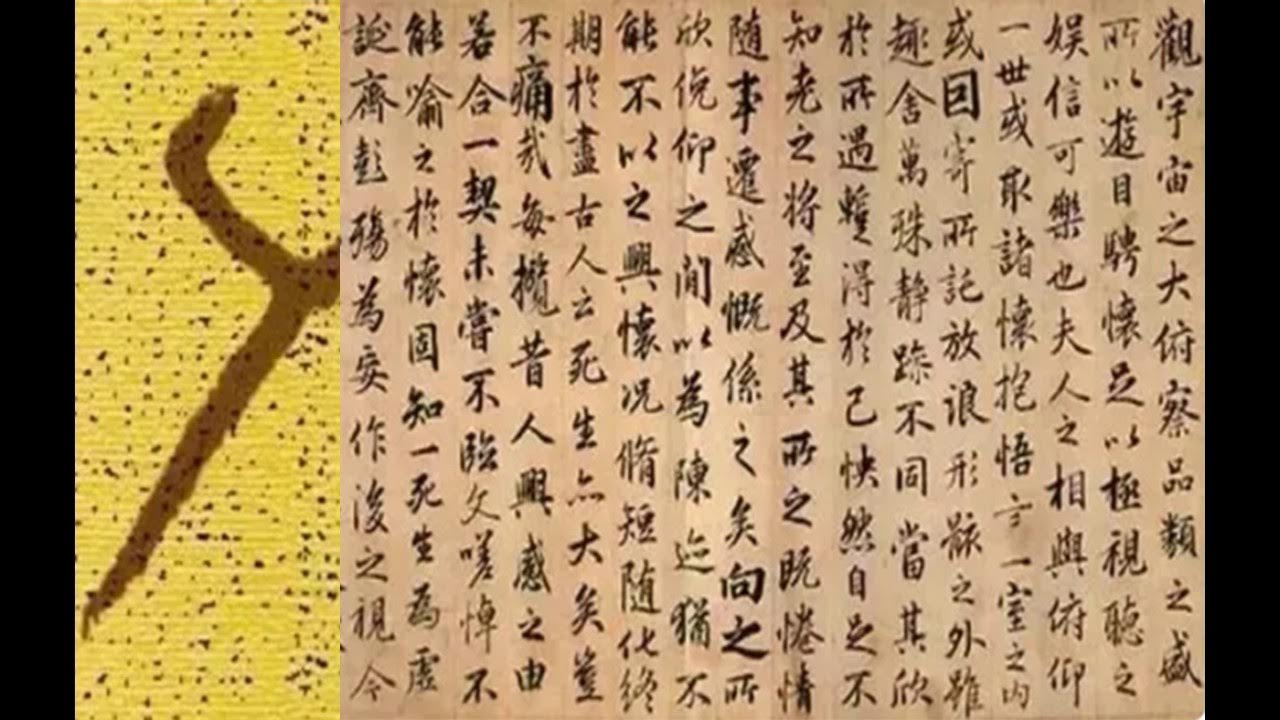 觀宇宙之大俯察品類之盛
所以遊目騁懷足以極視聽之
娛信可樂也夫人之相與俯仰
一世或取諸懷抱悟言一室之內
或因寄所託放浪形骸之外雖
趣舍萬殊靜躁不同當其欣
於所遇蹔得於己怏然自足不
知老之將至及其所之既惓情
隨事遷感慨係之矣向之所
欣俛仰之間以為陳迹猶不
能不以之興懷況脩短隨化終
期於盡古人云死生亦大矣豈
不痛哉每攬昔人興感之由
若合一契未嘗不臨文嗟悼不
能喻之於懷固知一死生為虛
誕齊彭殤為妄作後之視今